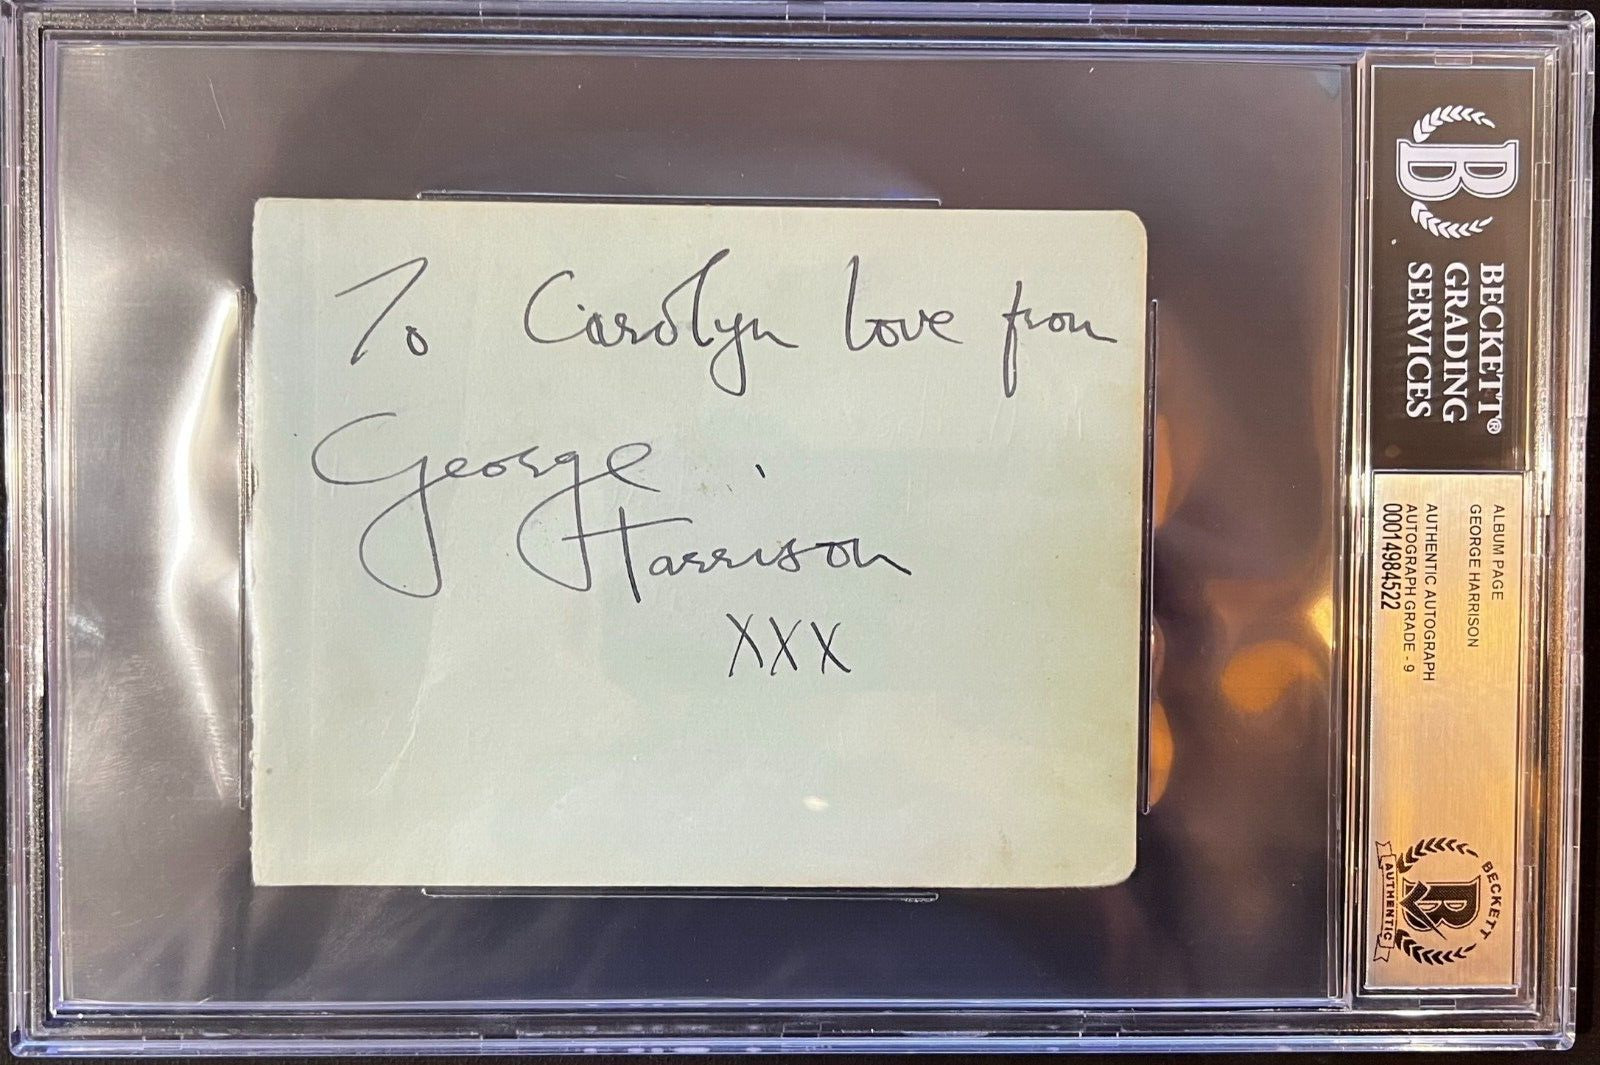 To Carolyn love from
George
Harrison
XXX
BECKETT®
GRADING
SERVICES
ALBUM PAGE
GEORGE HARRISON
AUTHENTIC AUTOGRAPH
AUTOGRAPH GRADE - 9
00014984522
BECKETT
AUTHENTIC